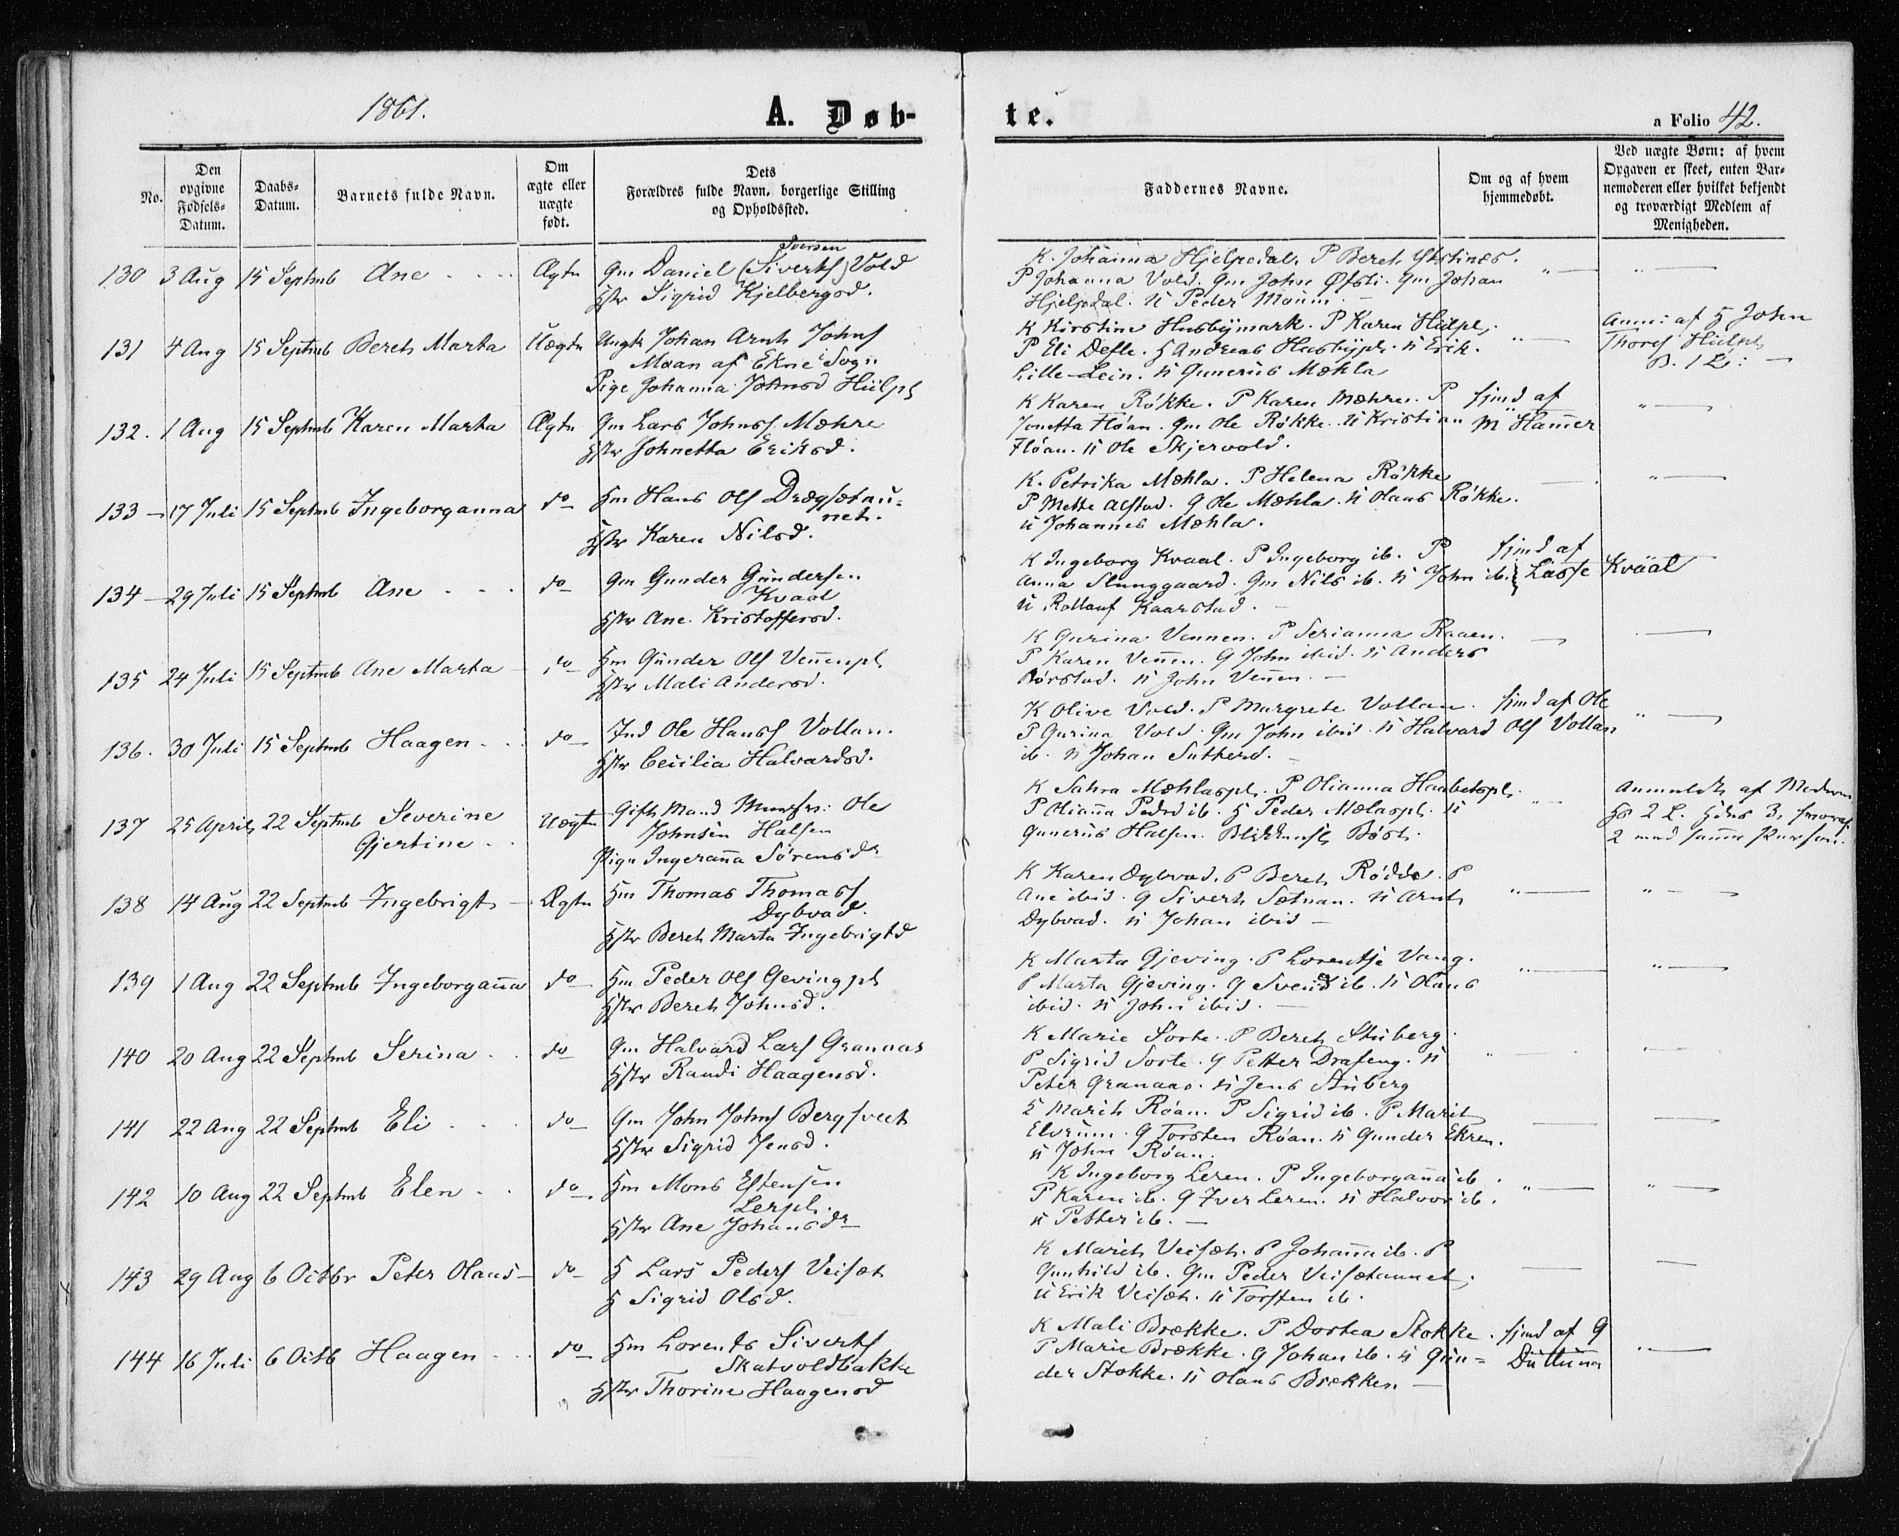 1861.
A. Døb-
te.
a Folio 42.
No.
Den
opgivne
Fødsels-
Datum.
Daabs-
Datum.
Barnets fulde Navn.
Om
ægte eller
uægte
født.
Dets
Forældres fulde Navn, borgerlige Stilling
og Opholdssted.
Faddernes Navne.
Om og af hvem
hjemmedøbt.
Ved uægte Børn: af hvem
Opgaven er skeet, enten Bar-
nemoderen eller hvilket bekjendt
og troværdigt Medlem af
Menigheden.
130 3 Aug 15 Septmb Ane Ægte
Iversen
Gm Daniel (Siverts) Vold
Hstr Sigrid Kjelbergsd.
K. Johanna Hjelpedal. P Beret
P Johanna Vold. Gm John Øfsti. Gm Johan
Hjelpdal. U Peder Mouum.
131 4 Aug 15 Septmb Beret Marta Uægte
Ungk Johan Arnt Johns
Moan af Ekne Sogn
Pige Johanna Johnsd Hülpl
K Kirstine Husbymark. P Karen Hülpl.
P Eli Defle. H Andreas Husbypl. U Erik
Lille Lein. U Gunerus Mæhla
Anm: af H John
Thores Hülpl
B. 1 L:
132. 1 Aug 15 Septmb Karen Marta Ægte
Gm Lars Johns. Mæhre
Hstr Johnetta Eriksd.
K Karen Røkke. P Karen Mæhre. P
Jonetta Fløan. Gm Ole Røkke. U Kristian
Fløan. U Ole Skjervold.
hjmd af
M Hammer
133 17 Juli 15 Septmb Ingeborganna do
Hm Hans Ols Drægsetau-
net.
Hstr Karen Nilsd.
K. Petrika Mæhla. P Helena Røkke
P Mette Alstad. G Ole Mæhla. U Olaus Røkke.
U Johannes Mæhla.
134 29 Juli 15 Septmb Ane do
Gm Gunder Gundersen
Kvaal
Hstr Ane Kristoffersd.
K Ingeborg Kvaal. P Ingeborg ib. P
Anna Slunggaard. Gm Nils ib. U John ib.
U Rollauf Kaarstad.
hjmd af
Lasse Kvaal
135 24 Juli 15 Septmb Ane Marta do
Hm Gunder Ols Vennenpl
Hstr Mali Andersd.
K Gurina Vennen. P Serianna Raaen.
P Karen Vennen. G John ibid. U Anders
Børstad. U John Vennen.
136. 30 Juli 15 Septmb Haagen do
Ind Ole Hans Vollan.
Hstr Cecilia Halvardsd.
K Olive Vold. P Margrete Vollan.
P Gurina Vold. Gm John ibid. U Halvard
ib. U Johan
hjmd af Ole
Ols Vollan
137 25 April 22 Septmb Severine
Gjertine
Uægte
Gift Mand Ole
Johnsen Halsen
Pige Ingeranna Sørensdr
K Sahra Mæhlaspl. P Olianna Haabetspl.
P Olianna Pedsd ib. H Peder Mælaspl. U
Gunerus Halsen.
Anmeldt af Moderen
hs 2 L. hds 3, hvoraf
2 med samme Person.
138 14 Aug 22 Septmb Ingebrigt Ægte
Hm Thomas Thomass
Dybvad.
Hstr Beret Marta Ingebrigtd
K Karen Dybvad. P Beret Rødde. P
Ane ibid. G Sivert Sætnan. U Arnt
Dybvad. U Johan ibid
139 1 Aug 22 Septmb Ingeborganna do
Hm Peder Ols Gevingpl
Hstr Beret Johnsd.
K Marta Gjeving. P Lorentse Vang.
P Marta Gjeving. G Svend ib. U Olaus
ibid. U John ibid.
140 20 Aug 22 Septmb Serina do
Gm Halvard Lars Granaas
Hstr Randi Haagensd.
K Marie Sorte. P Beret Stuberg.
P Sigrid Sorte. G Petter Drafeng. U
Peter Granaas. U Jens Stuberg
141 22 Aug 22 Septmb Eli do
Gm John Johns Bergsveet
Hstr Sigrid Jensd.
H Marit Røan. P Sigrid ib. P Marit
Elvrum. G Torsten Røan. U Gunder Ekren.
U John Røan.
142 10 Aug 22 Septmb Elen do
Hm Mons Estensen
Lerpl.
Hstr Ane Johansdr
K Ingeborg Leren. P Ingeborganna ib.
P Karen ib. G Iver Leren. U Halvor ib.
U Petter ib.
143 29 Aug 6 Octbr Peter Olaus do
H Lars Peders Veiset
H Sigrid Olsd.
K Marit Veiset. P Johanna ib. P
Gunhild ib. Gm Peder Veisetaunet.
U Erik Veiset. U Torsten ib.
144 16 Juli 6 Octb Haagen do
Hm Lorents Siverts
Skatvoldbakke
Hstr Thorine Haagensd
K Mali Brække. P Dortea Stokke.
P Marie Brække. G Johan ib. U Gun-
der Stokke. U Olaus Brækken
hjmd af G